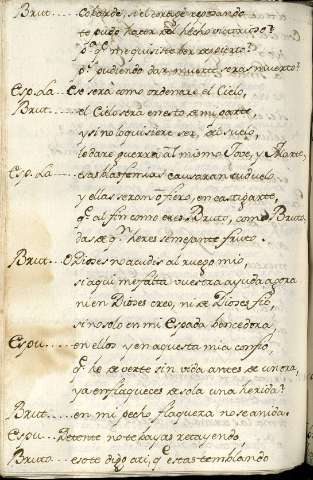 Brut.... cobarde, si el coraçõ reposando
te pudo hacer
q̃ me quisiste ver despierto?
q̃ pudiendo dar muerte, seras muerto?
Esp.La.. Ese sera como ordenare el Cielo,
Brut.... el Cielo sera en esto de mi parte,
y si no lo quisiere ser, del suelo,
le dare guerra, al mismo Jove, y Marte,
Esp.La... esas blasfemias causaran tu duelo
y ellas seran fiero, en castigarte,
q̃ al fin como eres Bruto, como Bruto
das de quien eres semejante fruto.
Brut... O Dioses no acudis al ruego mio,
si aqui me falta vuestra ayuda agora
ni en Dioses creo, ni de Dioses fio,
si no solo en mi Espada vencedora,
Espu.... en ellos y en aquesta mia confio,
q̃ he de verte sin vida antes de un ora,
ya enflaqueces de sola una herida?
Brut.... en mi pecho flaquera no se anida.
Espu... Detente no te bayas retrayendo,
Bruto.... esto te digo a ti, q̃ estas temblando